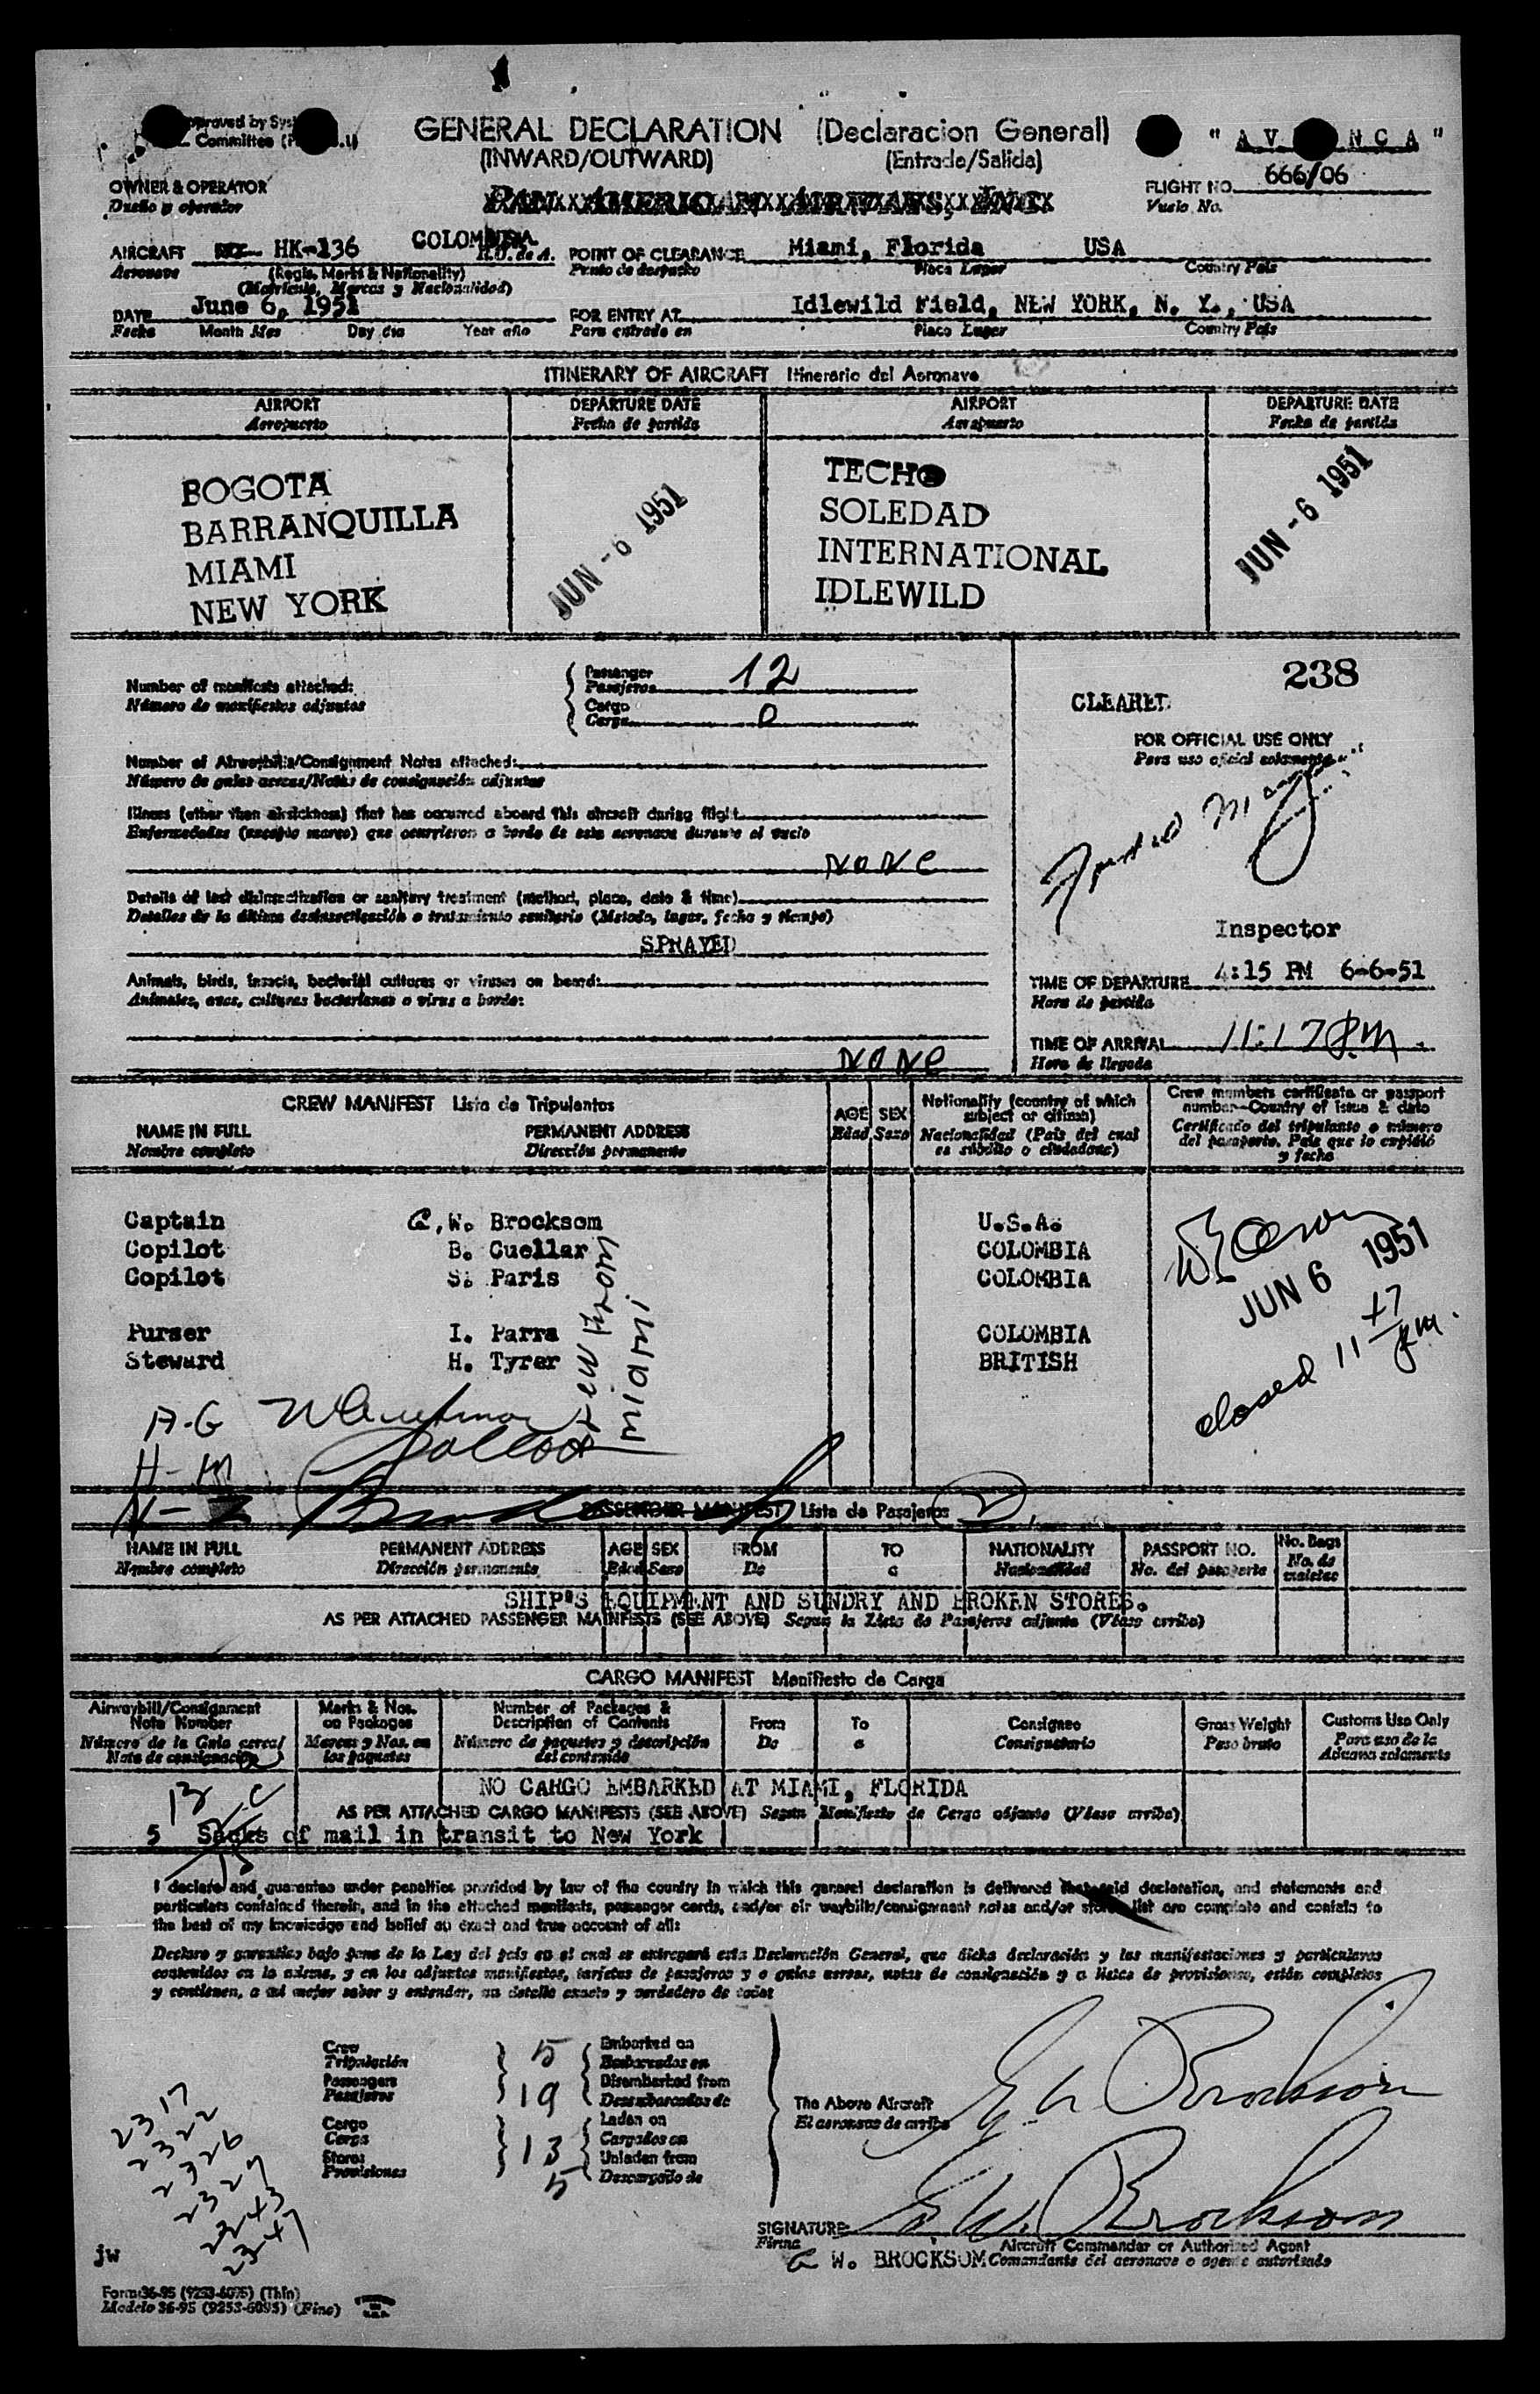 GENERAL DECLARATION (Declaracion General)
(INWARD/OUTWARD) (Entrada/Salida)
Approved by
Committee
"AV NCA"
OWNER & OPERATOR
Dueño y operador
PAN AMERICAN AIRWAYS, INC.
FLIGHT NO. 666/06
Vuelo No.
AIRCRAFT HK-136 COLOMBIA
Aeronave
(Regis. Marks & Nationality)
(Matrícula, Marcas y Nacionalidad)
POINT OF CLEARANCE Miami, Florida USA
Punto de despacho Place Lugar Country País
DATE June 6, 1951
Fecha Month Mes Day día Year año
FOR ENTRY AT Idlewild Field, NEW YORK, N. Y., USA
Para entrada en Place Lugar Country País
ITINERARY OF AIRCRAFT Itinerario del Aeronave
AIRPORT DEPARTURE DATE AIRPORT DEPARTURE DATE
Aeropuerto Fecha de partida Aeropuerto Fecha de partida
BOGOTA TECHO
BARRANQUILLA SOLEDAD
MIAMI INTERNATIONAL
NEW YORK IDLEWILD
JUN -6 1951 JUN -6 1951
Number of manifests attached:
Número de manifiestos adjuntos
Passenger
Pasajeros 12
Cargo
Carga 0
238
CLEARED
FOR OFFICIAL USE ONLY
Para uso oficial solamente
Number of Airwaybills/Consignment Notes attached:
Número de guías aereas/Notas de consignación adjuntas
Illness (other than airsickness) that has occurred aboard this aircraft during flight
Enfermedades (excepto mareo) que ocurrieron a bordo de esta aeronave durante el vuelo
NONE
Details of last disinsectization or sanitary treatment (method, place, date & time)
Detalles de la última desinsectización o tratamiento sanitario (Metodo, lugar, fecha y tiempo)
SPRAYED
Inspector
Animals, birds, insects, bacterial cultures or viruses on board:
Animales, aves, cultivos bacterianos o virus a bordo:
NONE
TIME OF DEPARTURE 4:15 PM 6-6-51
Hora de partida
TIME OF ARRIVAL 11:17 P.M.
Hora de llegada
CREW MANIFEST Lista de Tripulantes
NAME IN FULL PERMANENT ADDRESS
Nombre completo Dirección permanente
AGE SEX
Edad Sexo
Nationality (country of which
subject or citizen)
Nacionalidad (País del cual
es súbdito o ciudadano)
Crew members certificate or passport
number—Country of issue & date
Certificado del tripulante o número
del pasaporte. País que lo expidió
y fecha
Captain W. Brocksom U.S.A.
Copilot B. Cuellar COLOMBIA
Copilot S. Paris COLOMBIA
Purser I. Parra COLOMBIA
Steward H. Tyrer BRITISH
Rem From
Miami
JUN 6 1951
closed 11 17 P.M.
A-G
H-M
N-Z
PASSENGER MANIFEST Lista de Pasajeros
NAME IN FULL PERMANENT ADDRESS AGE SEX FROM TO NATIONALITY PASSPORT NO. No. Bags
Nombre completo Dirección permanente Edad Sexo De a Nacionalidad No. del pasaporte No. de maletas
SHIP'S EQUIPMENT AND SUNDRY AND BROKEN STORES.
AS PER ATTACHED PASSENGER MAINFESTS (SEE ABOVE) Según la Lista de Pasajeros adjunta (Véase arriba)
CARGO MANIFEST Manifiesto de Carga
Airwaybill/Consignment
Note Number
Número de la Guía aerea/
Nota de consignación
Marks & Nos.
on Packages
Marcas y Nos. en
los paquetes
Number of Packages &
Description of Contents
Número de paquetes y descripción
del contenido
From
De
To
a
Consignee
Consignatario
Gross Weight
Peso bruto
Customs Use Only
Para uso de la
Aduana solamente
NO CARGO EMBARKED AT MIAMI, FLORIDA
AS PER ATTACHED CARGO MANIFESTS (SEE ABOVE) Según Manifiesto de Carga adjunto (Véase arriba)
5 Sacks of mail in transit to New York
I declare and guarantee under penalties provided by law of the country in which this general declaration is delivered that said declaration, and statements and
particulars contained therein, and in the attached manifests, passenger cards, and/or air waybills/consignment notes and/or stores list are complete and contain to
the best of my knowledge and belief an exact and true account of all:
Declaro y garantizo bajo pena de la Ley del país en el cual es entregará esta Declaración General, que dicha declaración y las manifestaciones y particulares
contenidos en la misma, y en los adjuntos manifiestos, tarjetas de pasajeros y o guías aereas, notas de consignación y o listas de provisiones, están completos
y contienen, a mi mejor saber y entender, un detalle exacto y verdadero de todas
Crew
Tripulación 5
Passengers
Pasajeros 19
Cargo
Carga 13
Stores
Provisiones 5
Embarked on
Embarcados en
Disembarked from
Desembarcados de
Laden on
Cargados en
Unladen from
Descargado de
The Above Aircraft
El aeronave de arriba
2317
2322
2326
2327
2343
2347
SIGNATURE
Firma
W. BROCKSOM
Aircraft Commander or Authorized Agent
Comandante del aeronave o agente autorizado
jw
Form 36-95 (9253-6095) (Thin)
Modelo 36-95 (9253-6095) (Fino)